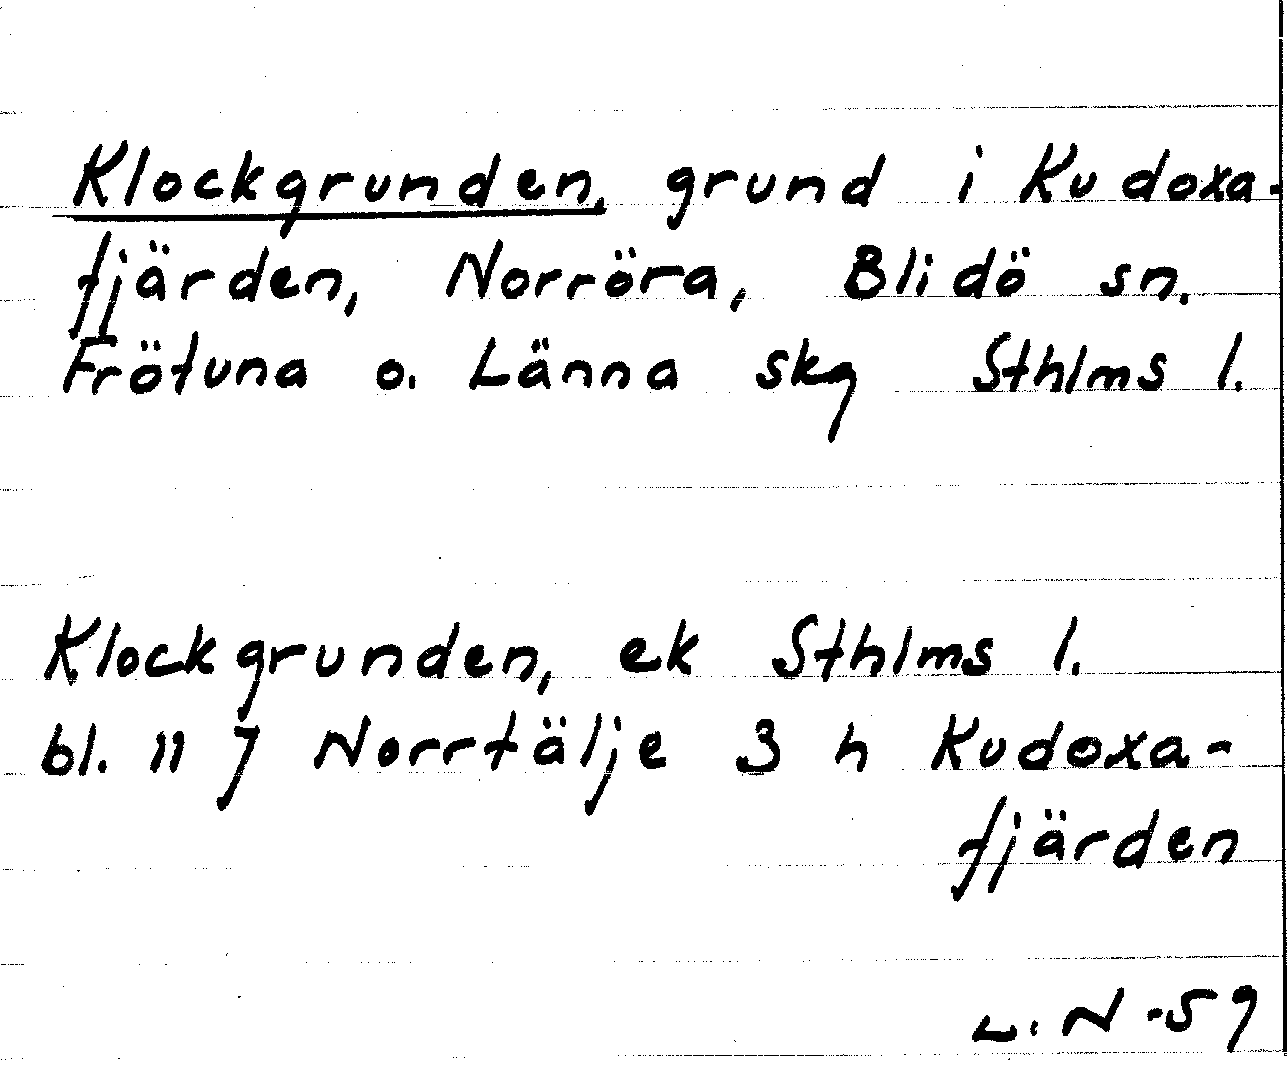 Klockgrunden, grund i Kudoxa-
fjärden, Norröra, Blidö sn.
Frötuna o. Länna skg Sthlms l.
Klockgrunden, ek Sthlms l.
bl. 11 J Norrtälje 3 h Kudoxa-
fjärden
L. N -59